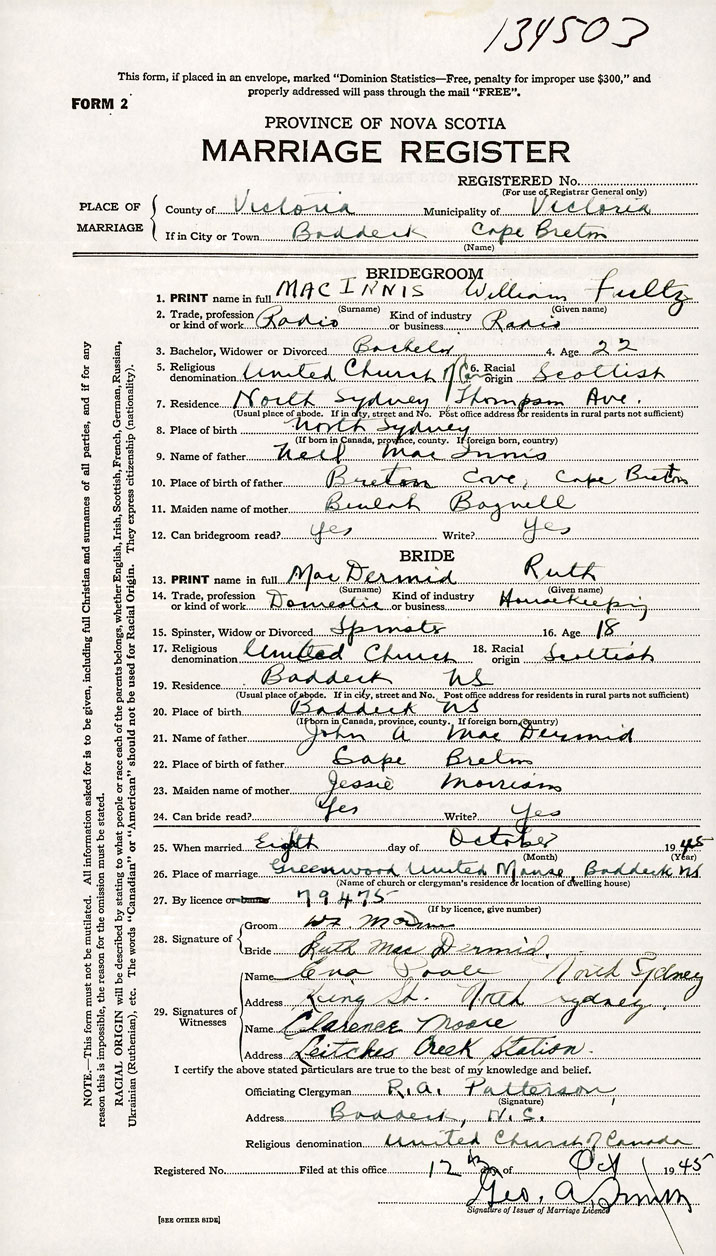 134503
This form, if placed in an envelope, marked "Dominion Statistics—Free, penalty for improper use $300," and
properly addressed will pass through the mail "FREE".
FORM 2
PROVINCE OF NOVA SCOTIA
MARRIAGE REGISTER
REGISTERED No.
(For use of Registrar General only)
PLACE OF MARRIAGE
County of Victoria Municipality of Victoria
If in City or Town Baddeck Cape Breton
(Name)
BRIDEGROOM
1. PRINT name in full MAC INNIS William Fultz
(Surname) (Given name)
2. Trade, profession or kind of work Radio Kind of industry or business Radio
3. Bachelor, Widower or Divorced Bachelor 4. Age 22
5. Religious denomination United Church of C. 6. Racial origin Scottish
7. Residence North Sydney Thompson Ave.
(Usual place of abode. If in city, street and No. Post office address for residents in rural parts not sufficient)
8. Place of birth North Sydney
(If born in Canada, province, county. If foreign born, country)
9. Name of father Neil Mac Innis
10. Place of birth of father Breton Cove, Cape Breton
11. Maiden name of mother Beulah Bagnell
12. Can bridegroom read? yes Write? yes
BRIDE
13. PRINT name in full MacDermid Ruth
(Surname) (Given name)
14. Trade, profession or kind of work Domestic Kind of industry or business Housekeeping
15. Spinster, Widow or Divorced Spinster 16. Age 18
17. Religious denomination United Church 18. Racial origin Scottish
19. Residence Baddeck NS
(Usual place of abode. If in city, street and No. Post office address for residents in rural parts not sufficient)
20. Place of birth Baddeck NS
(If born in Canada, province, county. If foreign born, country)
21. Name of father John A MacDermid
22. Place of birth of father Cape Breton
23. Maiden name of mother Jessie Morrison
24. Can bride read? Yes Write? Yes
25. When married Eighth day of October 1945
(Month) (Year)
26. Place of marriage Greenwood United Manse, Baddeck NS
(Name of church or clergyman's residence or location of dwelling house)
27. By licence or 79475
(If by licence, give number)
28. Signature of
Groom
Bride Ruth MacDermid.
29. Signatures of Witnesses
Name Eva Poole North Sydney
Address King St. North Sydney.
Name Clarence Moore
Address Leitches Creek Station.
I certify the above stated particulars are true to the best of my knowledge and belief.
Officiating Clergyman R.A. Patterson
(Signature)
Address Baddeck, N.S.
Religious denomination United Church of Canada
Registered No. Filed at this office 12th day of Oct 1945
Geo. A Smith
Signature of Issuer of Marriage Licence
[SEE OTHER SIDE]
NOTE.—This form must not be mutilated. All information asked for is to be given, including full Christian and surnames of all parties, and if for any
reason this is impossible, the reason for the omission must be stated.
RACIAL ORIGIN will be described by stating to what people or race each of the parents belongs, whether English, Irish, Scottish, French, German, Russian,
Ukrainian (Ruthenian), etc. The words "Canadian" or "American" should not be used for Racial Origin. They express citizenship (nationality).